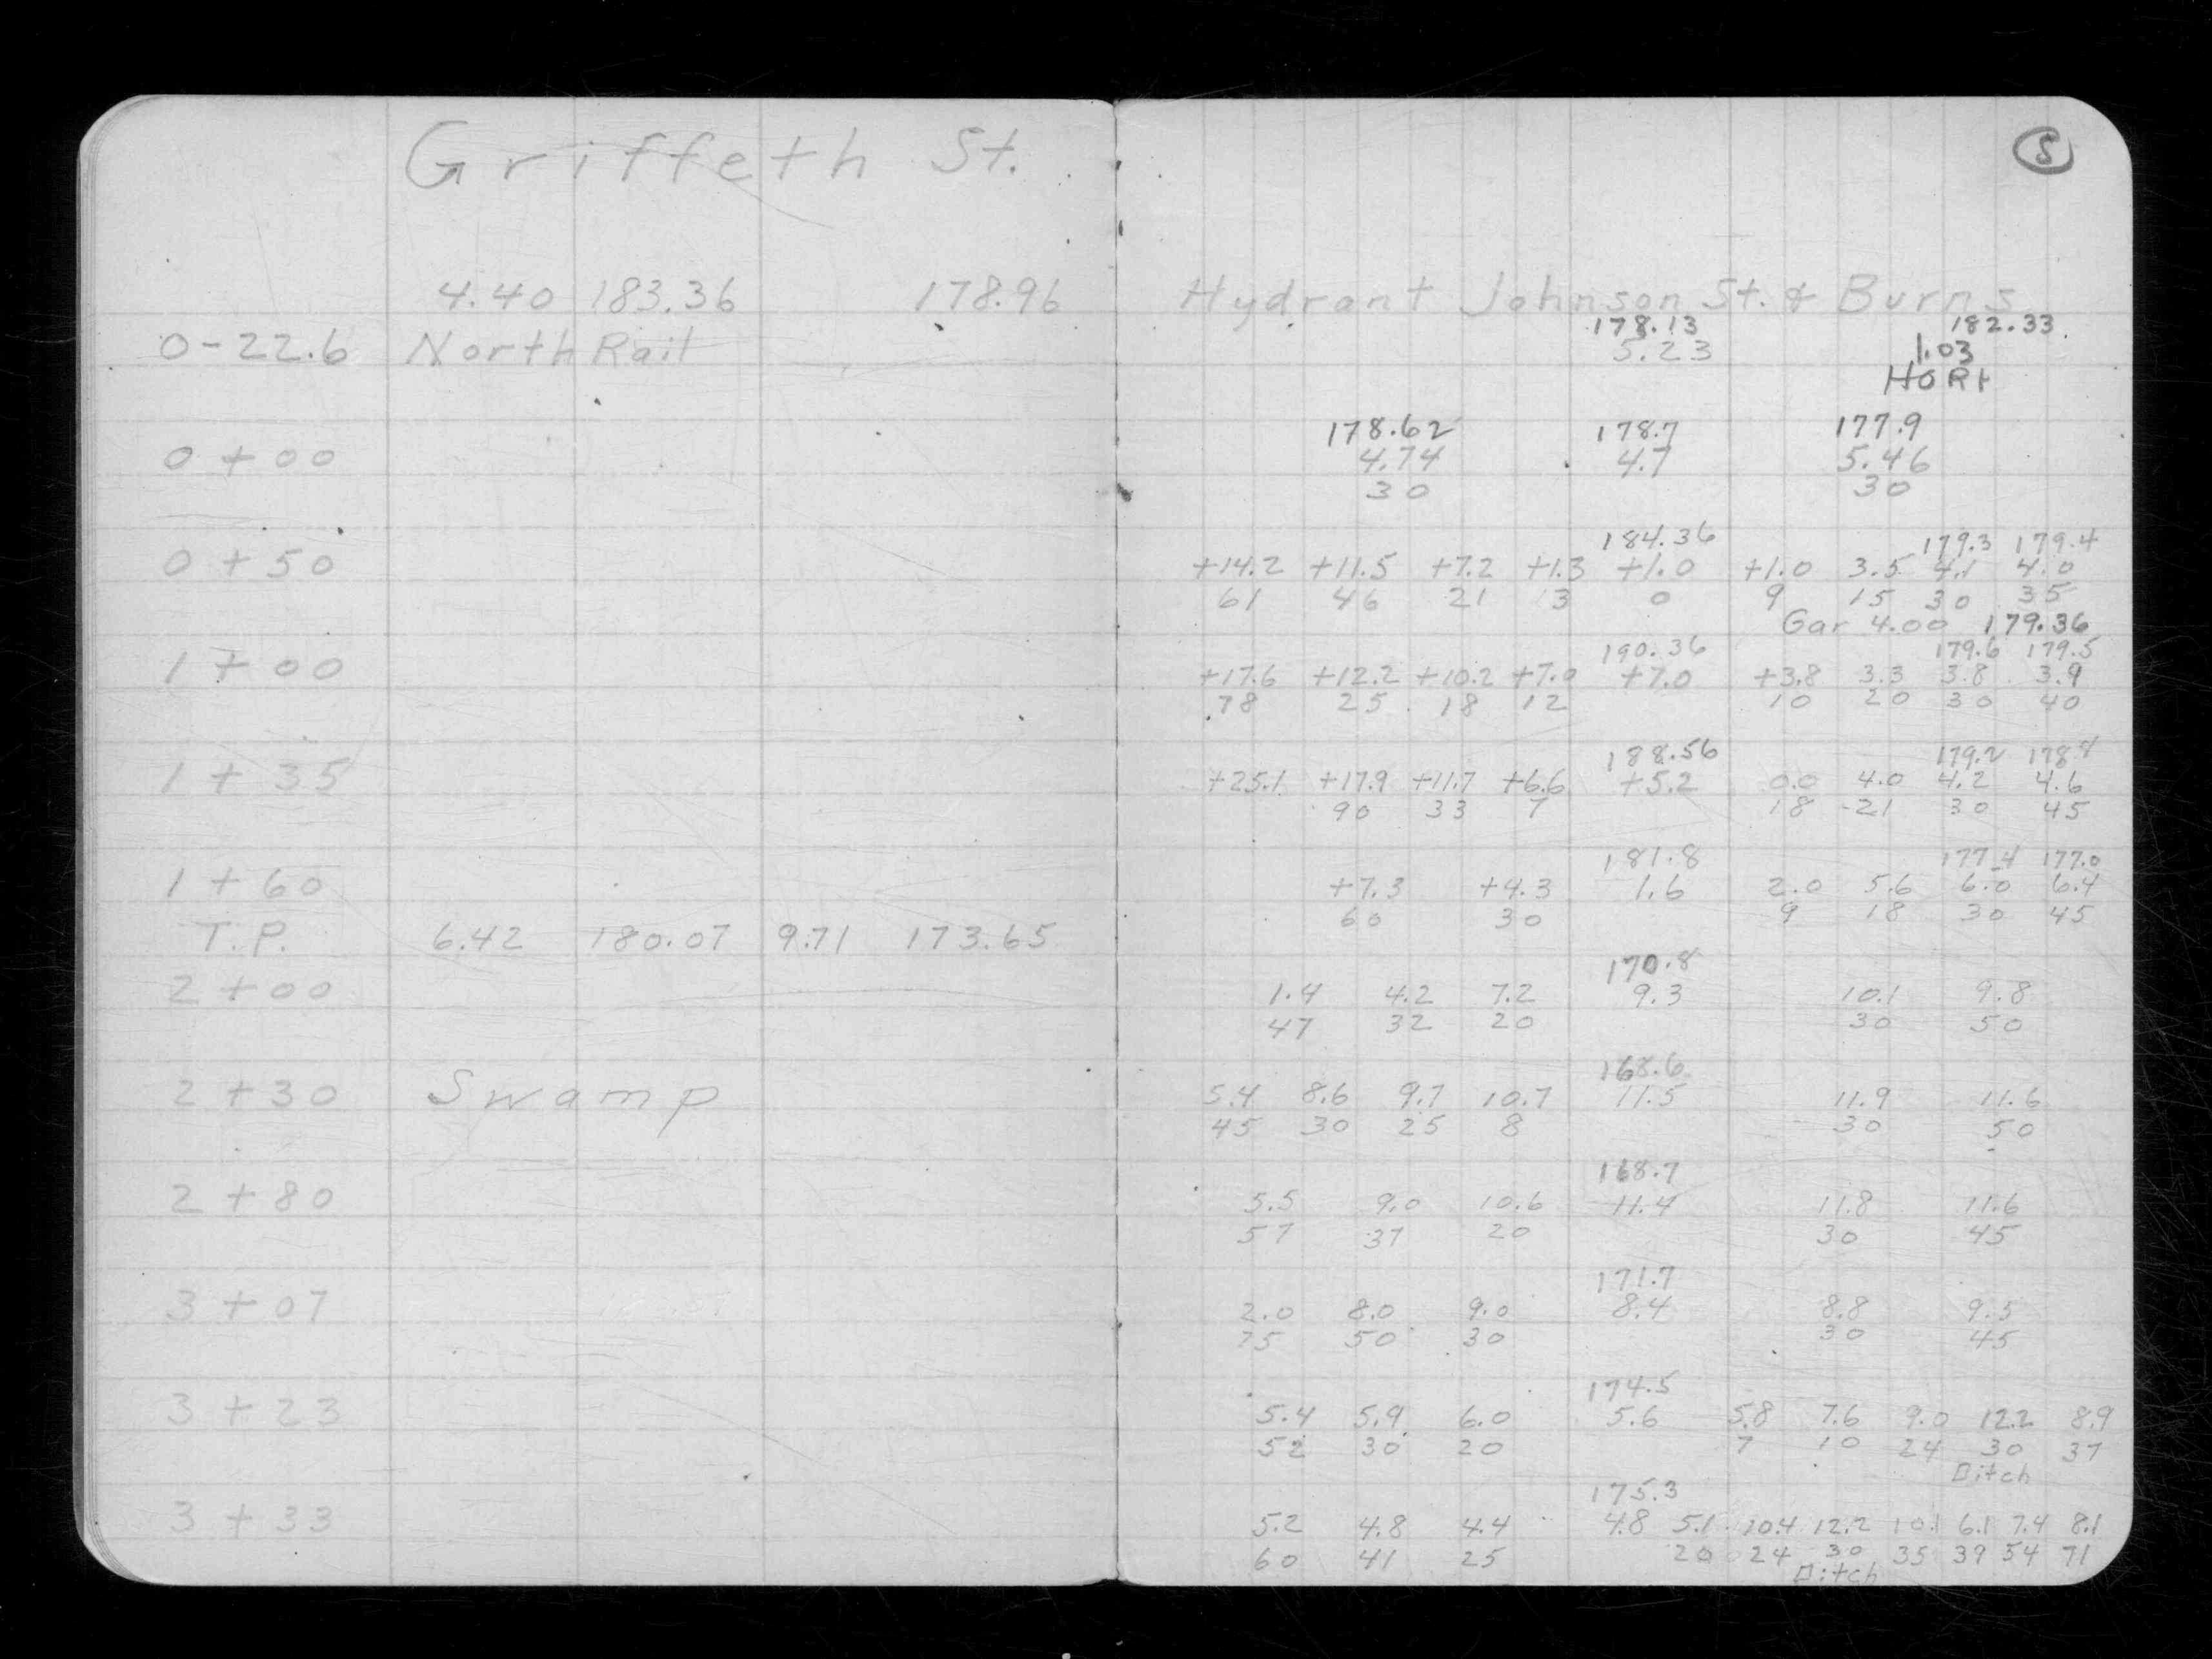 Griffeth St.
5
4.40 183.36 178.96 Hydrant Johnson St. & Burns
178.13 182.33
0-22.6 North Rail 5.23 1.03
HORt
178.62 178.7 177.9
0+00 4.74 4.7 5.46
30 30
184.36 179.3 179.4
0+50 +14.2 +11.5 +7.2 +1.3 +1.0 +1.0 3.5 4.1 4.0
61 46 21 13 0 9 15 30 35
Gar 4.00 179.36
190.36 179.6 179.5
1+00 +17.6 +12.2 +10.2 +7.0 +7.0 +3.8 3.3 3.8 3.9
78 25 18 12 10 20 30 40
188.56 179.2 178.8
1+35 +25.1 +17.9 +11.7 +6.6 +5.2 0.0 4.0 4.2 4.6
90 33 7 18 21 30 45
181.8 177.4 177.0
1+60 +7.3 +4.3 1.6 2.0 5.6 6.0 6.4
60 30 9 18 30 45
T.P. 6.42 180.07 9.71 173.65
170.8
2+00 1.4 4.2 7.2 9.3 10.1 9.8
47 32 20 30 50
168.6
2+30 Swamp 5.4 8.6 9.7 10.7 11.5 11.9 11.6
45 30 25 8 30 50
168.7
2+80 5.5 9.0 10.6 11.4 11.8 11.6
57 37 20 30 45
171.7
3+07 2.0 8.0 9.0 8.4 8.8 9.5
75 50 30 30 45
174.5
3+23 5.4 5.9 6.0 5.6 5.8 7.6 9.0 12.2 8.9
52 30 20 7 10 24 30 37
Ditch
175.3
3+33 5.2 4.8 4.4 4.8 5.1 10.4 12.2 10.1 6.1 7.4 8.1
60 41 25 20 24 30 35 39 54 71
Ditch